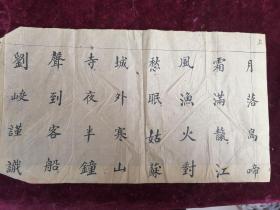 月落烏啼
霜滿江
風漁火對
愁眠姑蘇
城外寒山
寺夜半鐘
聲到客船
劉峻謹識